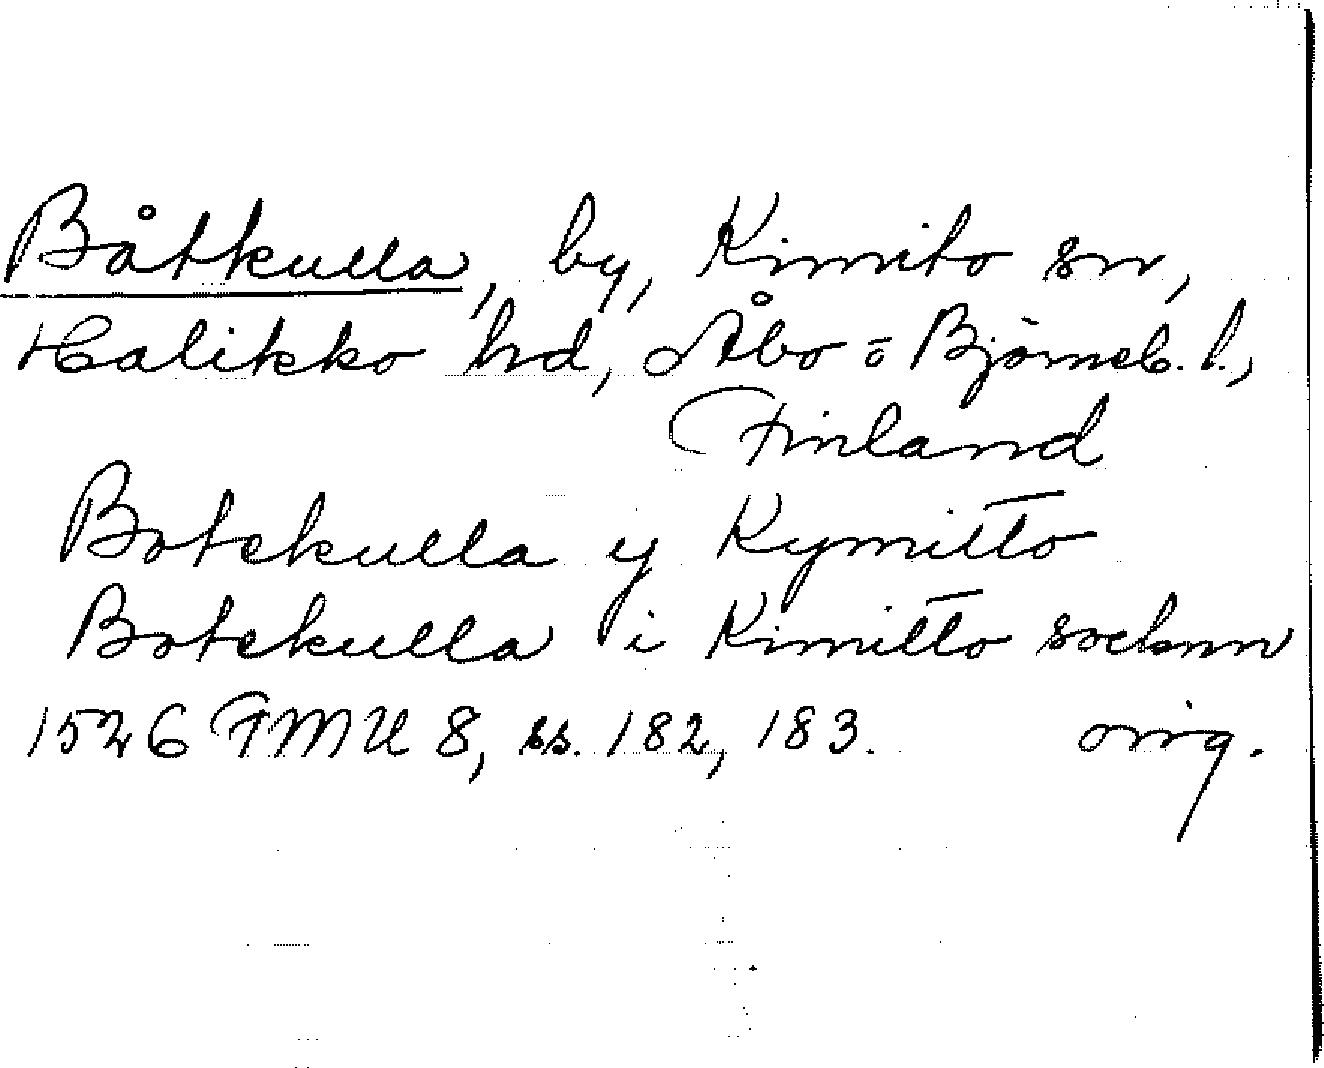 Båtkulla, by, Kimito sn,
Halikko hd, Åbo o Björneb. l.,
Finland
Botekulla y Kymitto
Botekulla i Kimitto socknn
1526 FMU 8, ss. 182, 183. orig.